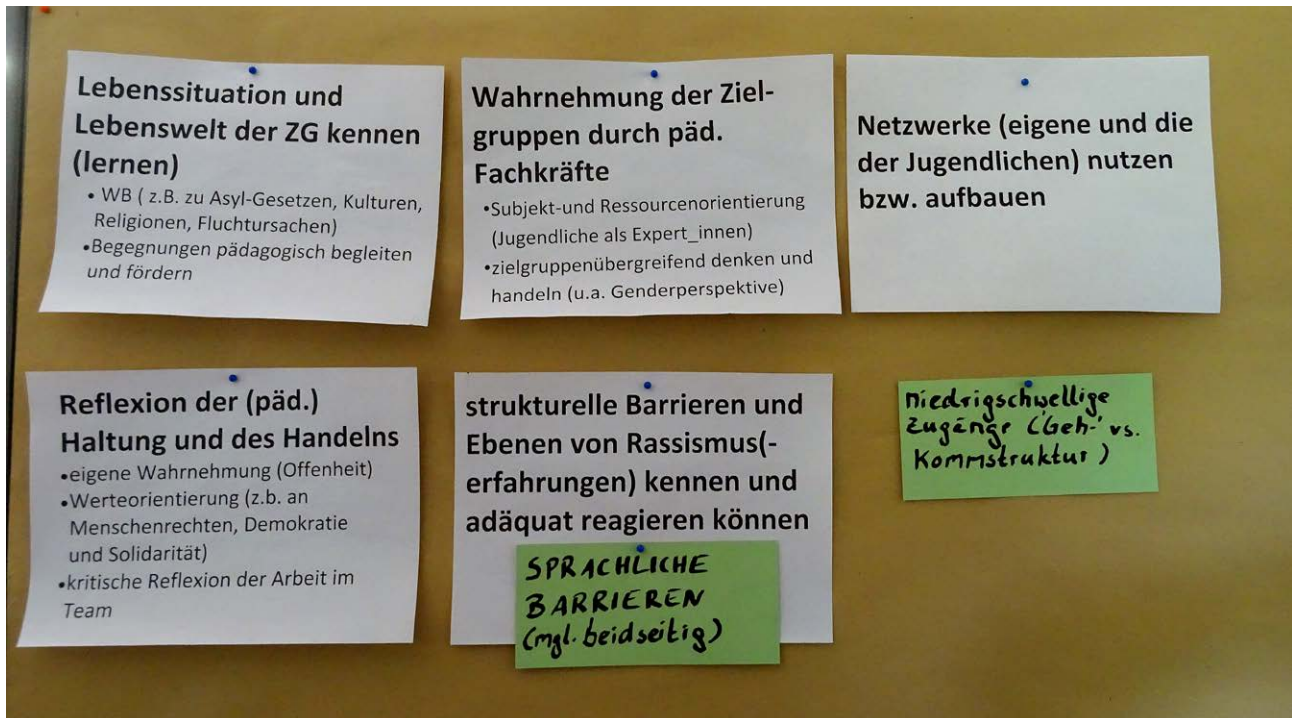 Lebenssituation und
Lebenswelt der ZG kennen
(lernen)
• WB ( z.B. zu Asyl-Gesetzen, Kulturen,
Religionen, Fluchtursachen)
•Begegnungen pädagogisch begleiten
und fördern
Wahrnehmung der Ziel-
gruppen durch päd.
Fachkräfte
•Subjekt-und Ressourcenorientierung
(Jugendliche als Expert_innen)
•zielgruppenübergreifend denken und
handeln (u.a. Genderperspektive)
Netzwerke (eigene und die
der Jugendlichen) nutzen
bzw. aufbauen
Reflexion der (päd.)
Haltung und des Handelns
•eigene Wahrnehmung (Offenheit)
•Werteorientierung (z.b. an
Menschenrechten, Demokratie
und Solidarität)
•kritische Reflexion der Arbeit im
Team
strukturelle Barrieren und
Ebenen von Rassismus(-
erfahrungen) kennen und
adäquat reagieren können
SPRACHLICHE
BARRIEREN
(mgl. beidseitig)
niedrigschwellige
Zugänge ('Geh-' vs.
Kommstruktur)